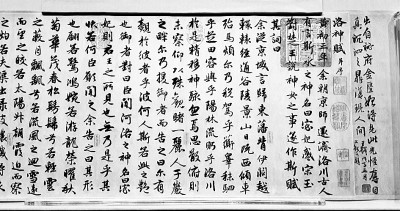 洛神賦 并序
黃初三年余朝京師還濟洛川古人
有言斯水之神名曰宓妃感宋玉
對楚王說神女之事遂作斯賦
其詞曰
余從京域言歸東藩背伊闕越
轘轅經通谷陵景山日既西傾車
殆馬煩尔乃稅駕乎蘅皋秣駟
乎芝田容與乎陽林流眄乎洛川於
是精移神駭忽焉思散俯則
未察仰以殊觀睹一麗人于巖
之畔尔乃援御者而告之曰尔有
覿於彼者乎彼何人斯若此之艷
也御者對曰臣聞河洛之神名曰宓
妃則君王之所見也無乃是乎其
狀若何臣願聞之余告之曰其形
也翩若驚鴻婉若游龍榮曜秋
菊華茂春松髣髴兮若輕雲
之蔽月飄颻兮若流風之迴雪遠
而望之皎若太陽升朝霞迫而察
之灼若芙蕖出淥波穠纖得